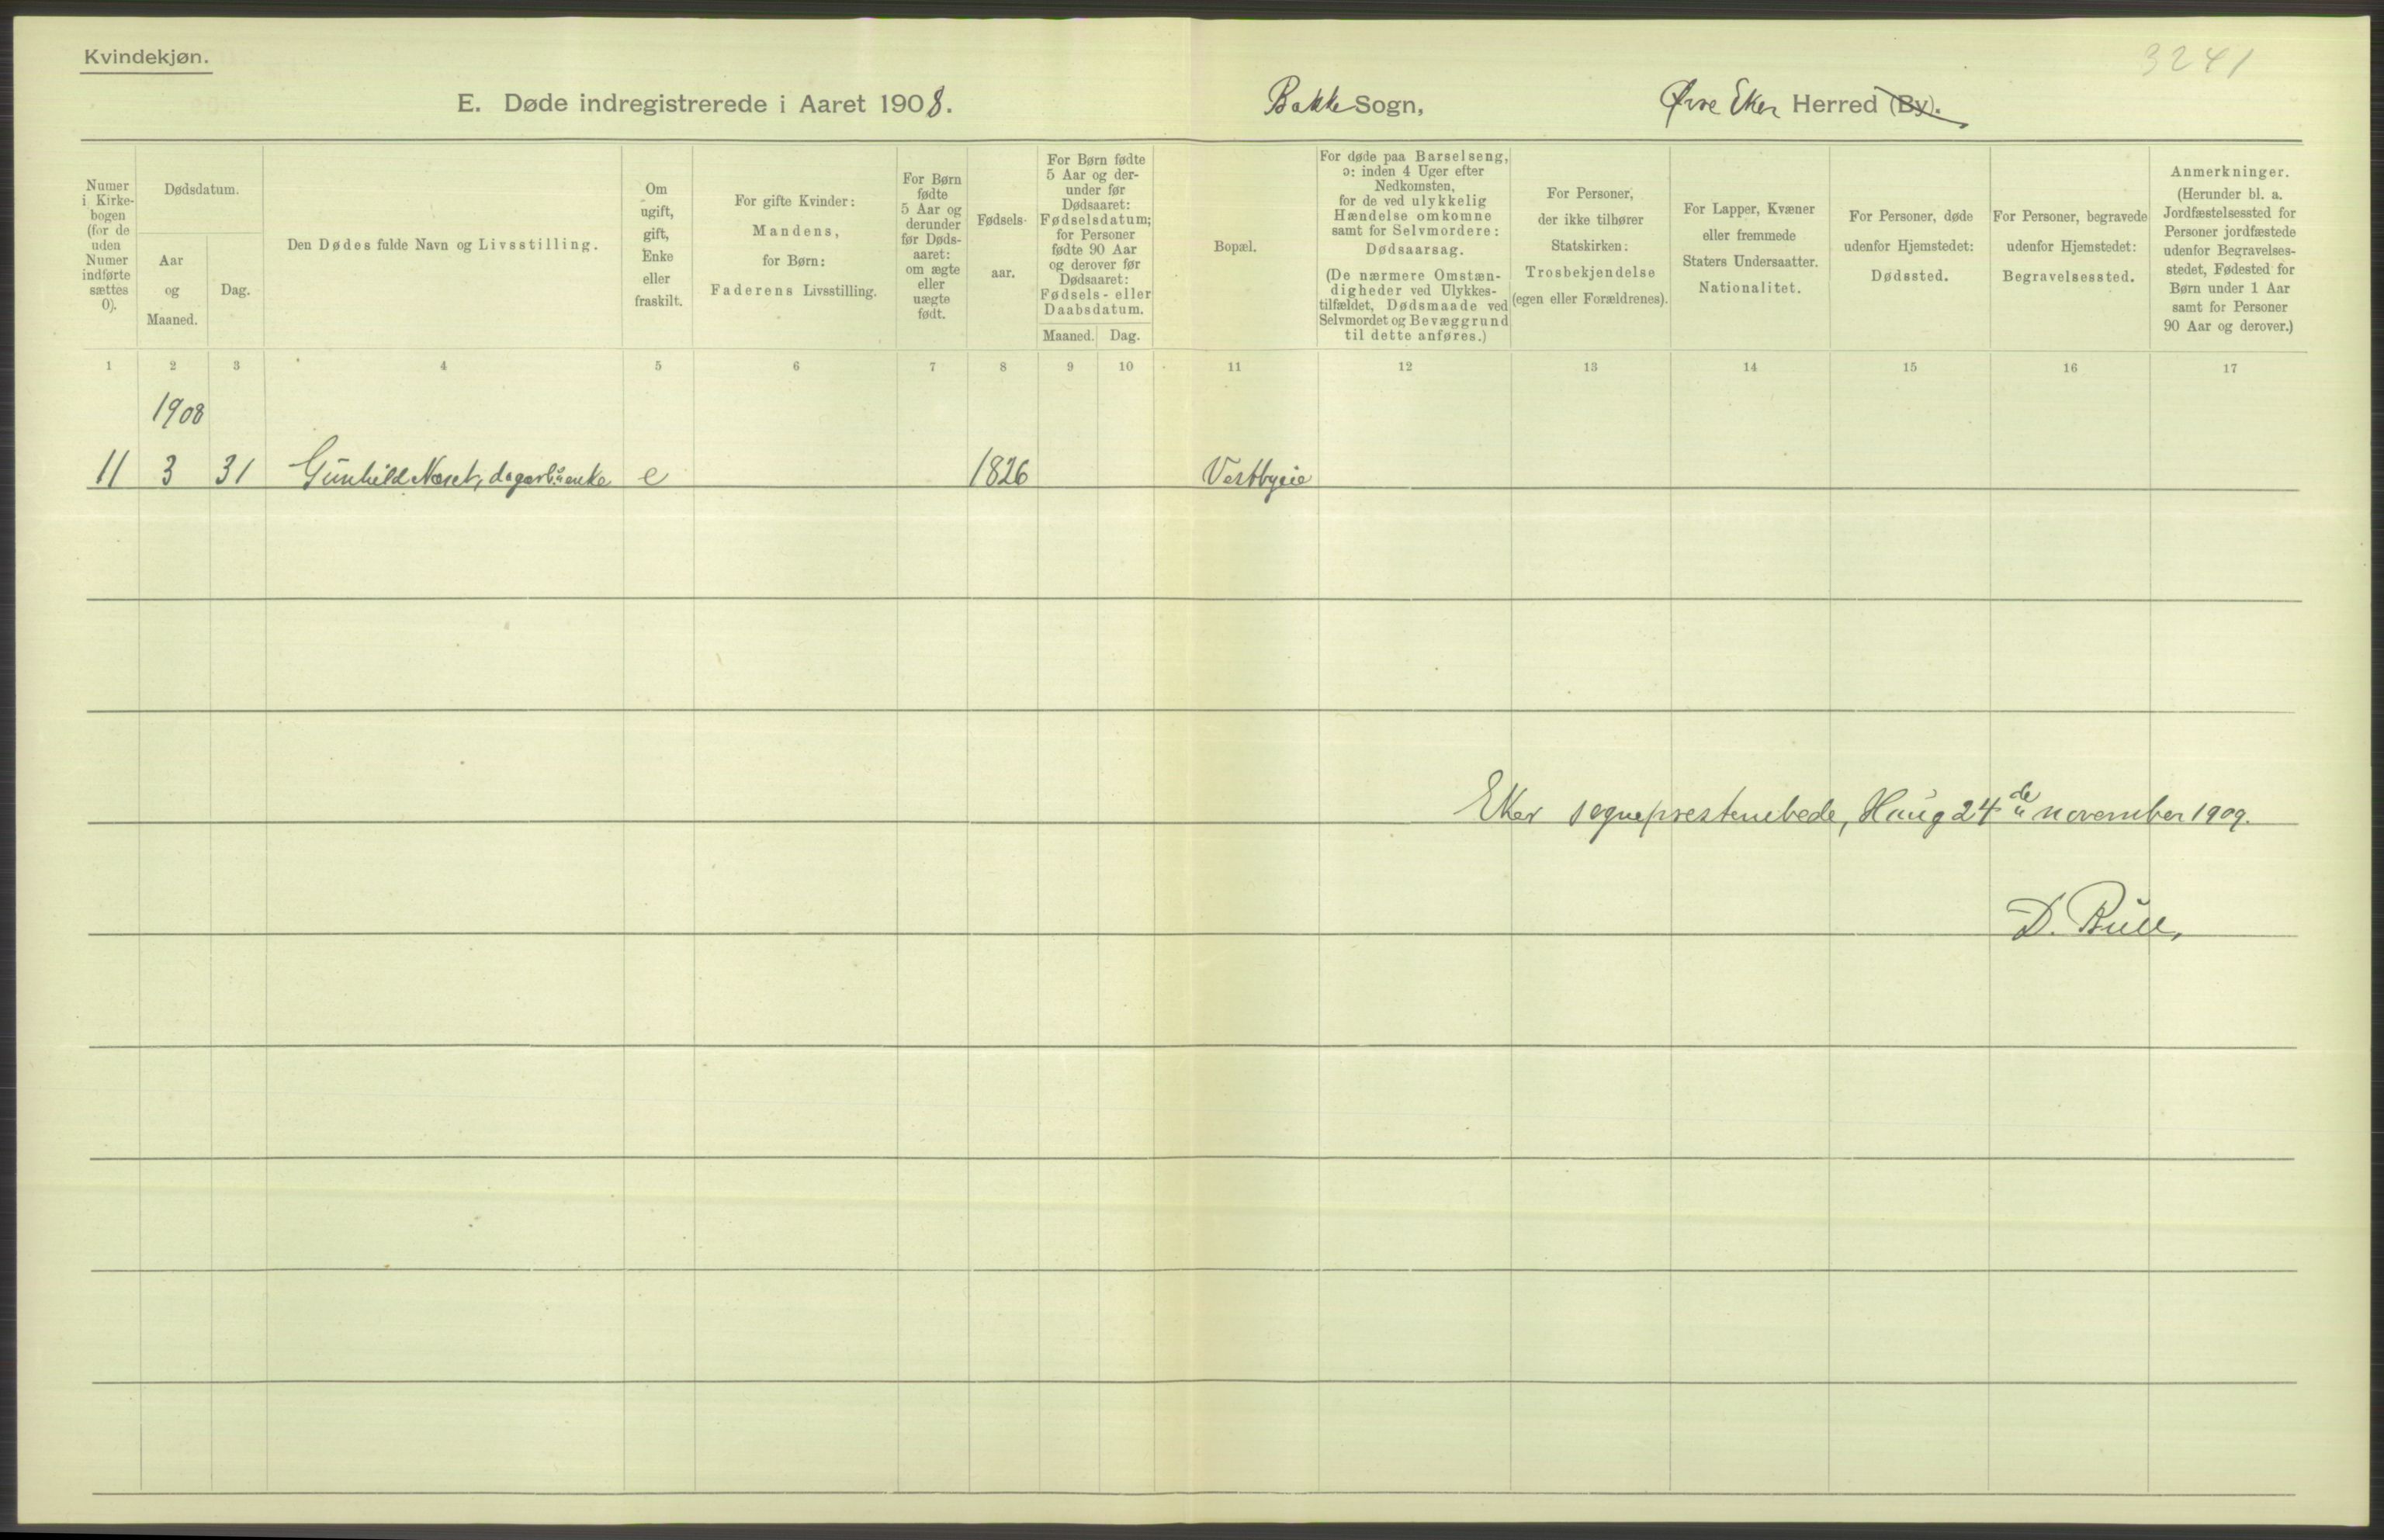 3241
Kvindekjøn.
E. Døde indregistrerede i Aaret 1908.
Bakke Sogn,
Øvre Eker Herred (By).
Numer i Kirke-bogen (for de uden Numer indførte sættes 0).
Dødsdatum.
Aar og Maaned.
Dag.
Den Dødes fulde Navn og Livsstilling.
Om ugift, gift, Enke eller fraskilt.
For gifte Kvinder: Mandens, for Børn: Faderens Livsstilling.
For Børn fødte 5 Aar og derunder før Døds-aaret: om ægte eller uægte født.
Fødsels-aar.
For Børn fødte 5 Aar og der-under før Dødsaaret: Fødselsdatum; for Personer fødte 90 Aar og derover før Dødsaaret: Fødsels- eller Daabsdatum.
Maaned. Dag.
Bopæl.
For døde paa Barselseng, ɔ: inden 4 Uger efter Nedkomsten, for de ved ulykkelig Hændelse omkomne samt for Selvmordere: Dødsaarsag. (De nærmere Omstæn-digheder ved Ulykkes-tilfældet, Dødsmaade ved Selvmordet og Bevæggrund til dette anføres.)
For Personer, der ikke tilhører Statskirken: Trosbekjendelse (egen eller Forældrenes).
For Lapper, Kvæner eller fremmede Staters Undersaatter. Nationalitet.
For Personer, døde udenfor Hjemstedet: Dødssted.
For Personer, begravede udenfor Hjemstedet: Begravelsessted.
Anmerkninger. (Herunder bl. a. Jordfæstelsessted for Personer jordfæstede udenfor Begravelses-stedet, Fødested for Børn under 1 Aar samt for Personer 90 Aar og derover.)
1 2 3 4 5 6 7 8 9 10 11 12 13 14 15 16 17
1908
11 3 31 Gunhild Næset, enke e 1826 Vestbyeie
Eker sogneprestembede, Haug 24de november 1909.
D. Bull,